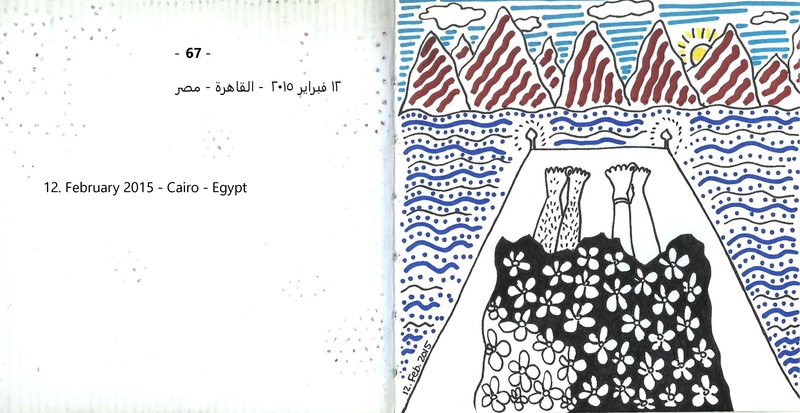 - 67 -
١٢ فبراير ٢٠١٥ - القاهرة - مصر
12. February 2015 - Cairo - Egypt
12. Feb. 2015